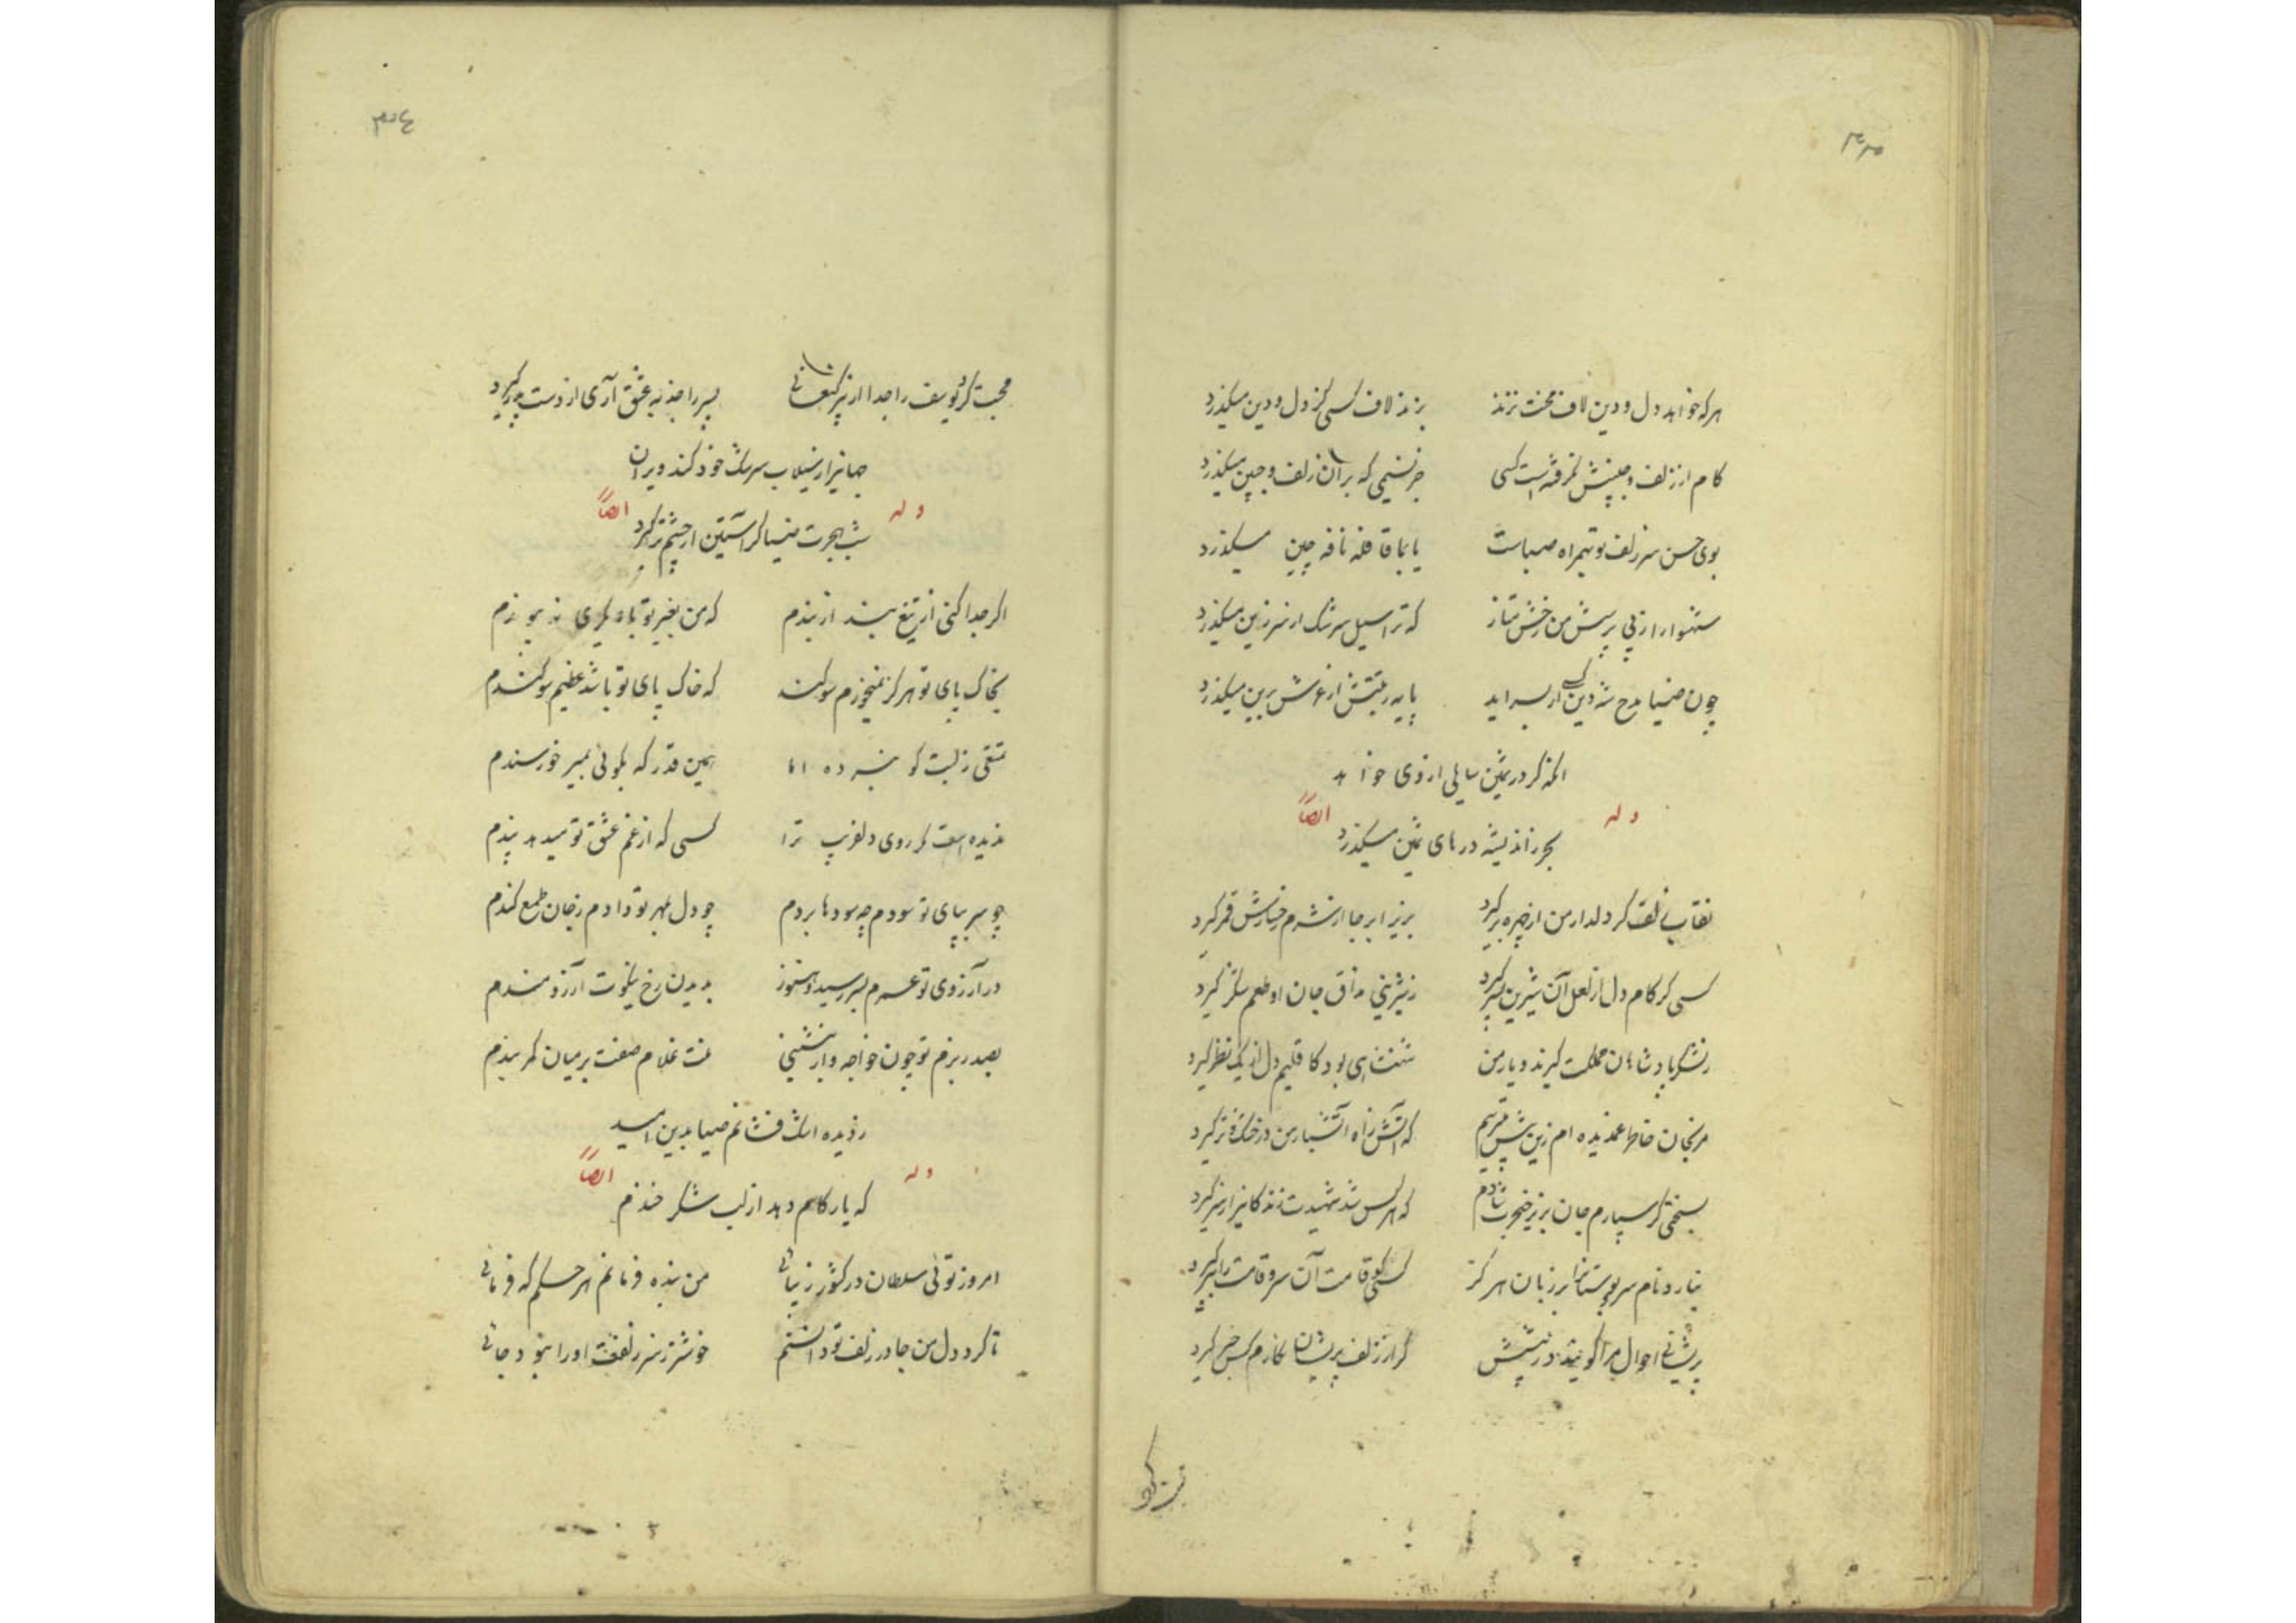 هرکه خواهد دل و دین لاف محبت نزند
بزند لاف کسی کز دل و دین میکذرد
کام از زلف و جبینش نکرفته است کسی
جز نسیمی که بر آن زلف و جبین میکذرد
بوی حسن سر زلف تو بهمراه صباست
یا بما قافله نافه چین میکذرد
که ترا سیل سرشک از سر زین میکذرد
چون ضیا مدح شه دین کسی ار بسراید
پایه رتبتش از عرش برین میکذرد
انکه کر در ثمین سایلی از وی خواهد
وله ایضاً
بحر ز اندیشه درهای ثمین میکذرد
نقاب زلف کر دلدار من از چهره برکیرد
بزیر ابر جا از شرم رخسارش قمر کیرد
کسی کر کام دل از لعل آن شیرین پسر کیرد
ز شیرینی مذاق جان او طعم شکر کیرد
بلشکر پادشاهان مملکت کیرند و یار من
شهنشاهی بود کاقلیم دل از یک نظر کیرد
مرنجان خاطر غمدیده ام زین بیش میترسم
که آتش ز آه آتشبار من در خشک و تر کیرد
بسختی کر سپارم جان بزیر خنجرت شادم
که هرکس شد شهیدت زندکانی را ز سر کیرد
نیارد نام سرو بوستان را بر زبان هرکز
کسی کو قامت آن سرو قامت را ببر کیرد
پریشانی احوال مرا کویند در پیشش
کر از زلف پریشان نکارم کس خبر کیرد
محبت کرد یوسف را جدا از پیر کنعانی
پسر را جذبه عشق آری از دست پدر کیرد
جهانی را ز سیلاب سرشک خود کند ویران
وله ایضاً
شب هجرت ضیا کر آستین از چشم تر کیرد
اکر جدا کنی از تیغ بند از بندم
که من بغیر تو با دیکری نه پیوندم
بخاک پای تو هرکز نمیخورم سوکند
که خاک پای تو باشد عظیم سوکندم
همین قدر که بکوئی بمیر خورسندم
ندیده است کر روی دلفریب ترا
کسی که از غم عشق تو میدهد پندم
چو سر بپای تو سودم چه سودها بردم
چو دل بمهر تو دادم ز جان طمع کندم
در آرزوی تو عمرم بسر رسید و هنوز
بدیدن رخ نیکوت آرزومندم
بصدر بزم تو چون خواجه وار بنشینی
منت غلام صفت بر میان کمر بندم
ز دیده اشک فشانم ضیا بدین امید
وله ایضاً
که یار کام دهد از لب شکر خندم
امروز توئی سلطان در کشور زیبائی
من بنده فرمانم هر حکم که فرمائی
تا کرد دل من جا در زلف تو دانستم
خوشتر ز سر زلفت او را نبود جائی